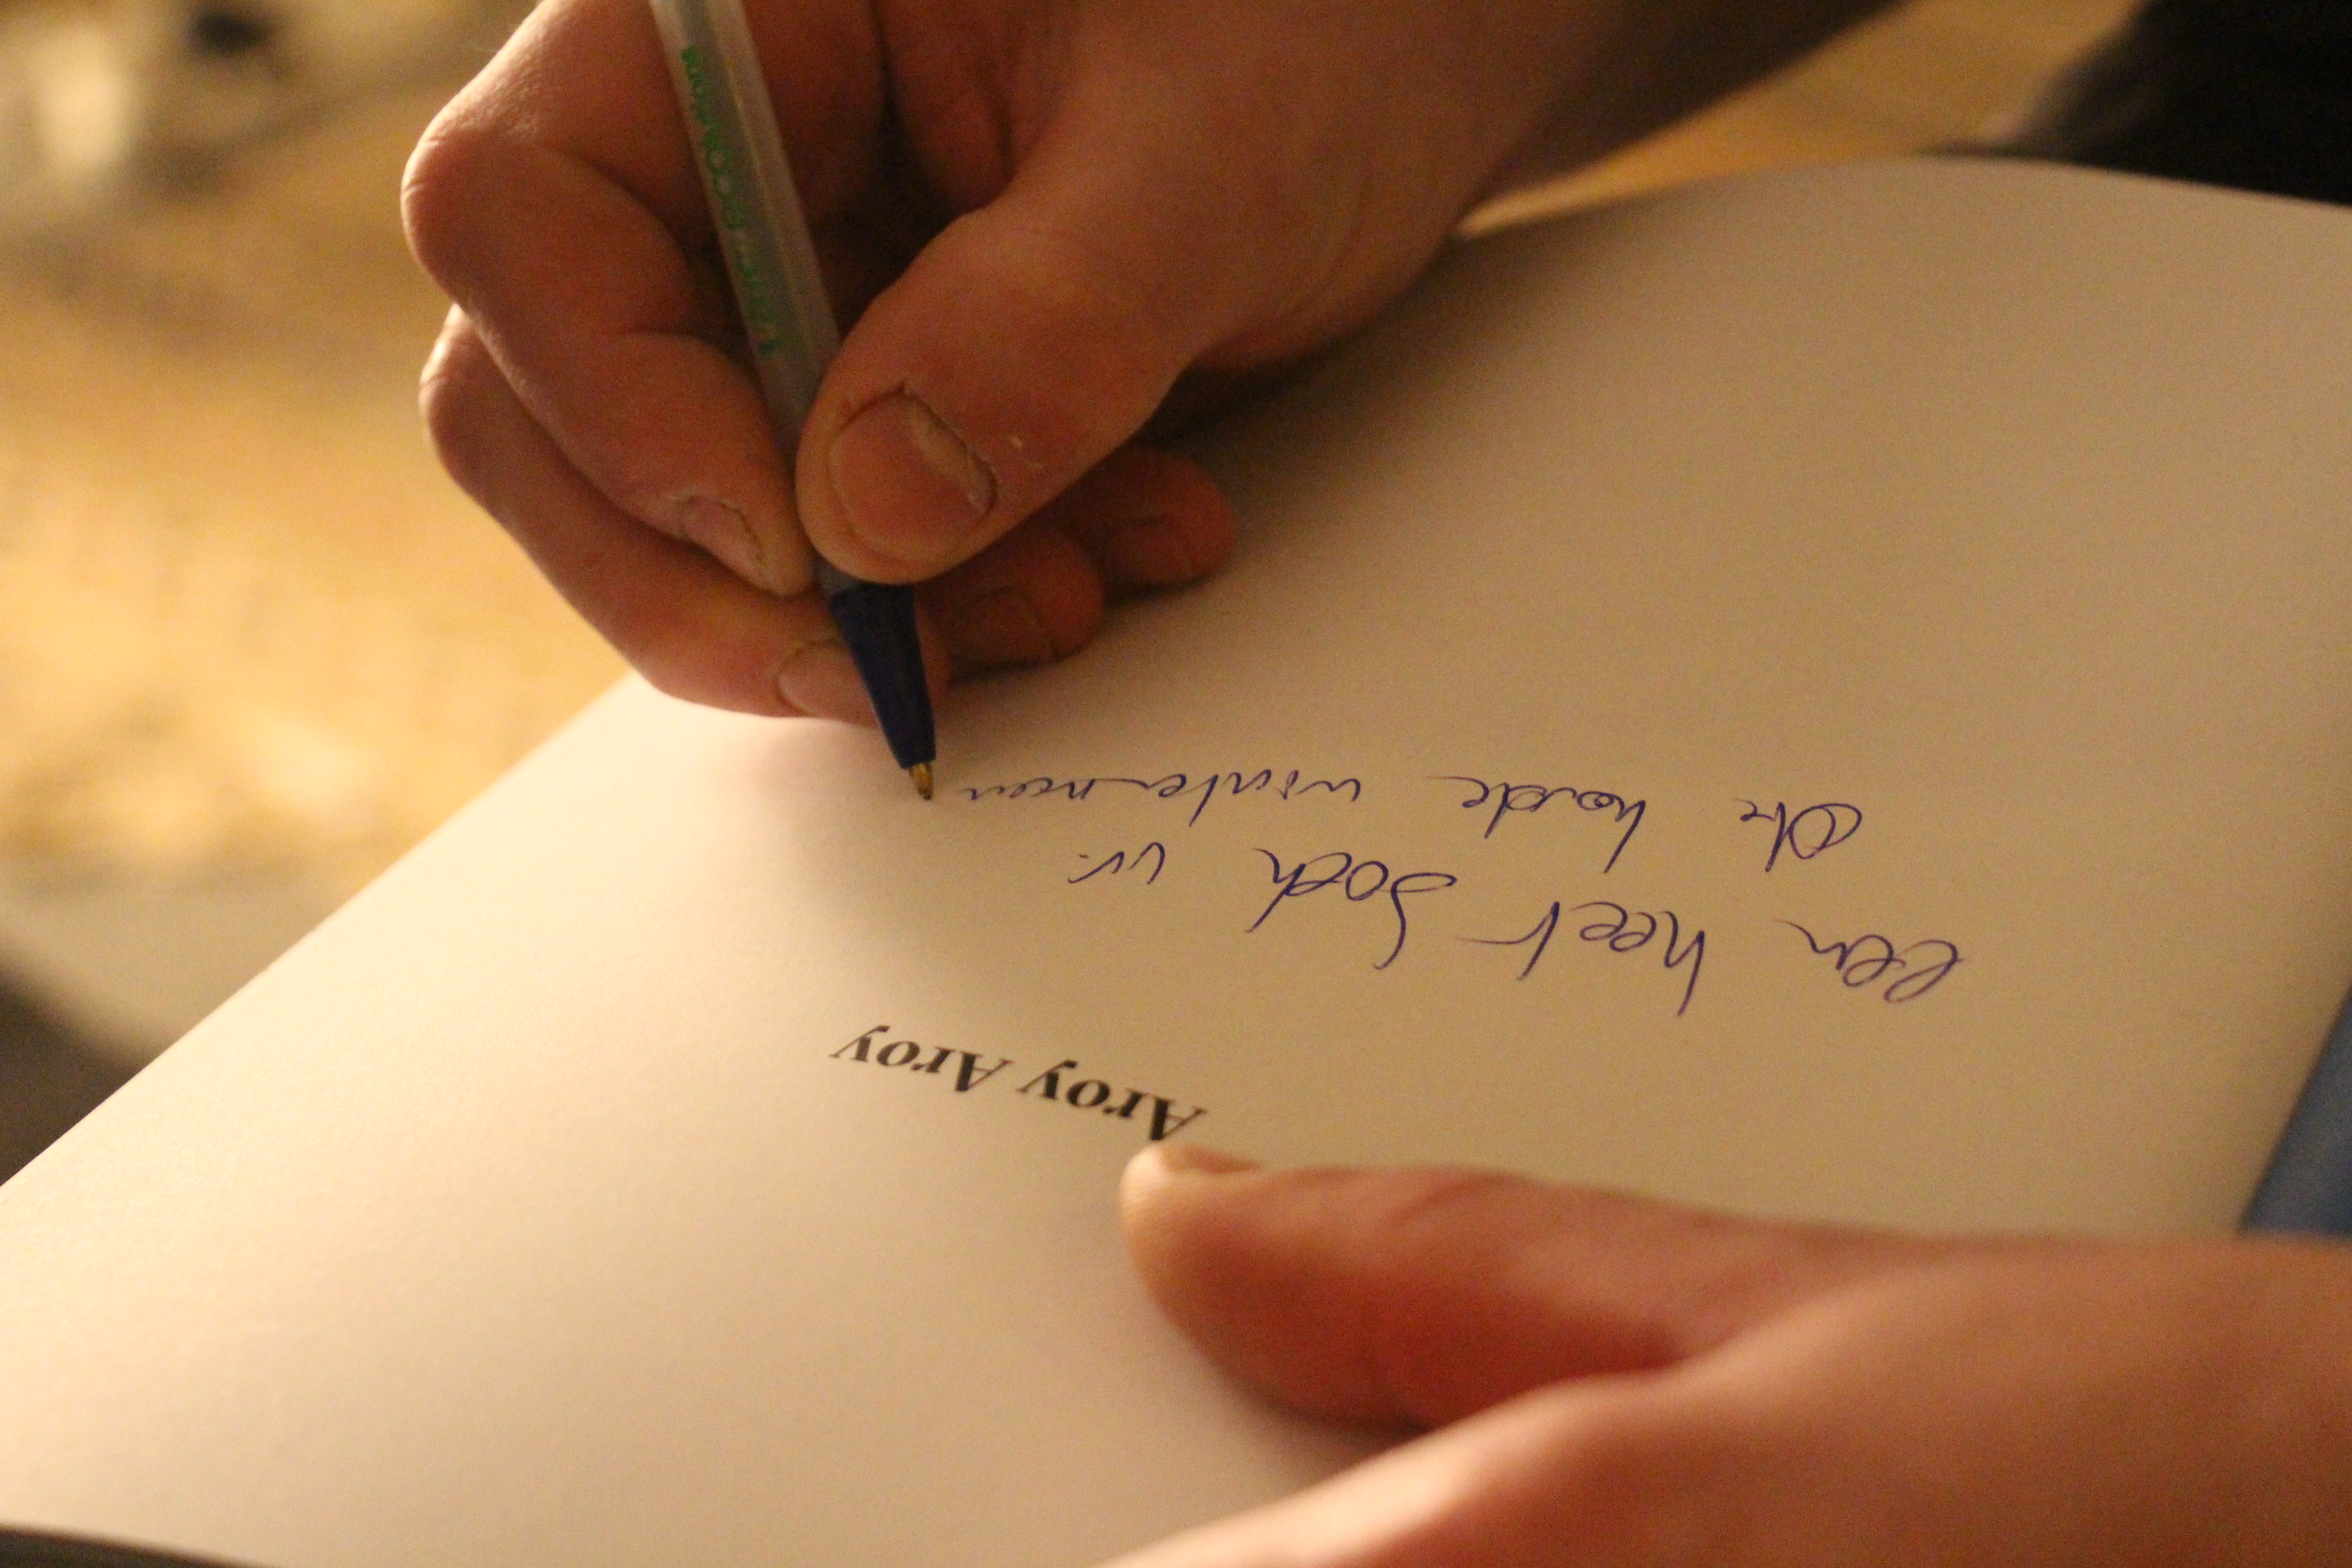 Aroy Aroy
een heet boek in
de koude wintermaan